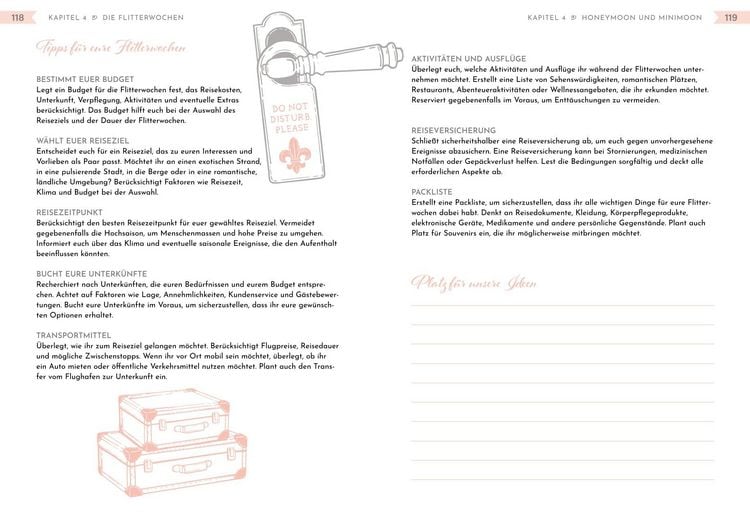 118
KAPITEL 4 & DIE FLITTERWOCHEN
Tipps für eure Flitterwochen
BESTIMMT EUER BUDGET
Legt ein Budget für die Flitterwochen fest, das Reisekosten,
Unterkunft, Verpflegung, Aktivitäten und eventuelle Extras
berücksichtigt. Das Budget hilft euch bei der Auswahl des
Reiseziels und der Dauer der Flitterwochen.
WÄHLT EUER REISEZIEL
Entscheidet euch für ein Reiseziel, das zu euren Interessen und
Vorlieben als Paar passt. Möchtet ihr an einen exotischen Strand,
in eine pulsierende Stadt, in die Berge oder in eine romantische,
ländliche Umgebung? Berücksichtigt Faktoren wie Reisezeit,
Klima und Budget bei der Auswahl.
DO NOT
DISTURB,
PLEASE
REISEZEITPUNKT
Berücksichtigt den besten Reisezeitpunkt für euer gewähltes Reiseziel. Vermeidet
gegebenenfalls die Hochsaison, um Menschenmassen und hohe Preise zu umgehen.
Informiert euch über das Klima und eventuelle saisonale Ereignisse, die den Aufenthalt
beeinflussen könnten.
BUCHT EURE UNTERKÜNFTE
Recherchiert nach Unterkünften, die euren Bedürfnissen und eurem Budget entspre-
chen. Achtet auf Faktoren wie Lage, Annehmlichkeiten, Kundenservice und Gästebewer-
tungen. Bucht eure Unterkünfte im Voraus, um sicherzustellen, dass ihr eure gewünsch-
ten Optionen erhaltet.
TRANSPORTMITTEL
Überlegt, wie ihr zum Reiseziel gelangen möchtet. Berücksichtigt Flugpreise, Reisedauer
und mögliche Zwischenstopps. Wenn ihr vor Ort mobil sein möchtet, überlegt, ob ihr
ein Auto mieten oder öffentliche Verkehrsmittel nutzen möchtet. Plant auch den Trans-
fer vom Flughafen zur Unterkunft ein.
KAPITEL 4 & HONEYMOON UND MINIMOON
119
AKTIVITÄTEN UND AUSFLÜGE
Überlegt euch, welche Aktivitäten und Ausflüge ihr während der Flitterwochen unter-
nehmen möchtet. Erstellt eine Liste von Sehenswürdigkeiten, romantischen Plätzen,
Restaurants, Abenteueraktivitäten oder Wellnessangeboten, die ihr erkunden möchtet.
Reserviert gegebenenfalls im Voraus, um Enttäuschungen zu vermeiden.
REISEVERSICHERUNG
Schließt sicherheitshalber eine Reiseversicherung ab, um euch gegen unvorhergesehene
Ereignisse abzusichern. Eine Reiseversicherung kann bei Stornierungen, medizinischen
Notfällen oder Gepäckverlust helfen. Lest die Bedingungen sorgfältig und deckt alle
erforderlichen Aspekte ab.
PACKLISTE
Erstellt eine Packliste, um sicherzustellen, dass ihr alle wichtigen Dinge für eure Flitter-
wochen dabei habt. Denkt an Reisedokumente, Kleidung, Körperpflegeprodukte,
elektronische Geräte, Medikamente und andere persönliche Gegenstände. Plant auch
Platz für Souvenirs ein, die ihr möglicherweise mitbringen möchtet.
Platz für unsere Ideen